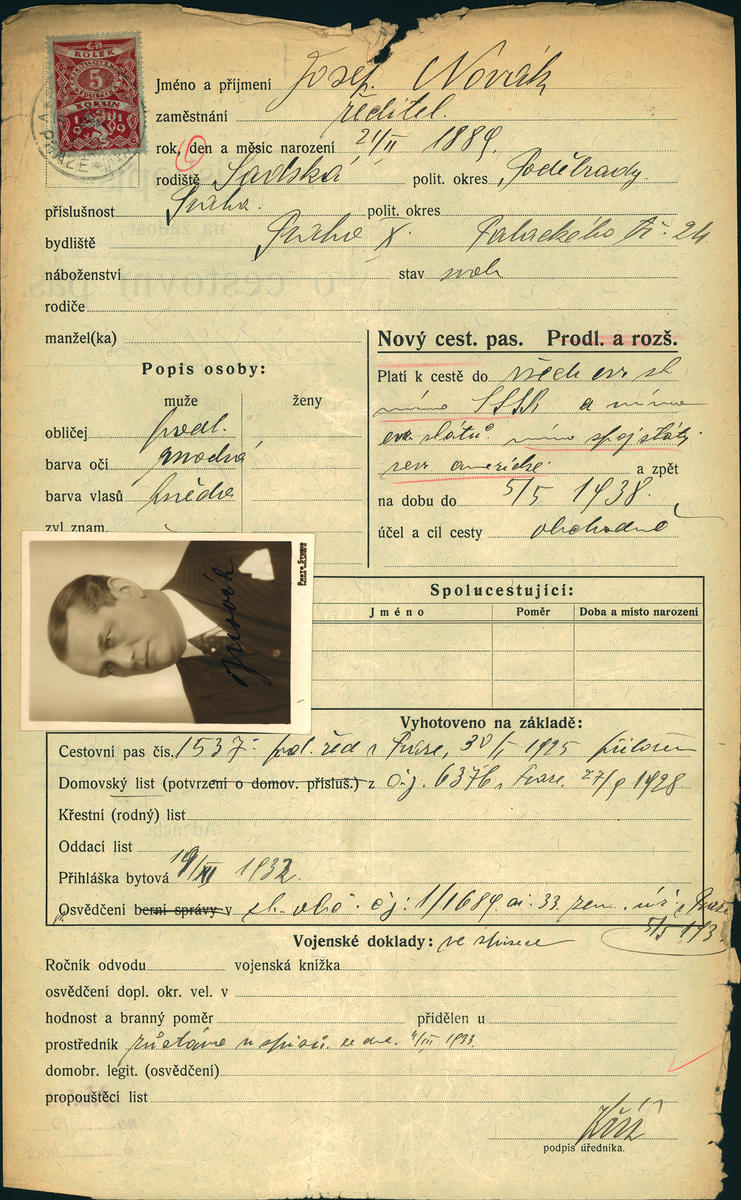 KOLEK
5
KORUN
1919
Jméno a příjmení Josef Novák
zaměstnání ředitel.
rok, den a měsíc narození 21/II 1889.
rodiště Sadská polit. okres Poděbrady.
příslušnost Praha. polit. okres
bydliště Praha X. Palackého tř. 24.
náboženství stav svob
rodiče
manžel(ka)
Nový cest. pas. Prodl. a rozš.
Popis osoby:
muže ženy
obličej podl.
barva očí modrá
barva vlasů hnědá
zvl. znam.
Platí k cestě do všech evr. st
mimo SSSR a mimo
evr. států mimo spoj. státy
sev. americké a zpět
na dobu do 5/5 1938.
účel a cíl cesty obchodně
JNovák
Spolucestující:
Jméno Poměr Doba a místo narození
Vyhotoveno na základě:
Cestovní pas čís. 1537 pol. řed. v Praze, 30/I 1925 přiložen
Domovský list (potvrzení o domov. přísluš.) z č.j. 6376 v Praze 27/9 1928.
Křestní (rodný) list
Oddací list
Přihláška bytová 19/XI 1932.
Osvědčení berní správy v č.j: 1/1689 ai: 33 zem. úř. v Praze
5/5 193
Vojenské doklady: ve spisech
Ročník odvodu vojenská knížka
osvědčení dopl. okr. vel. v
hodnost a branný poměr přidělen u
prostředník zůstává u spisů ze dne /III 1933.
domobr. legit. (osvědčení)
propouštěcí list
Kříž
podpis úředníka.